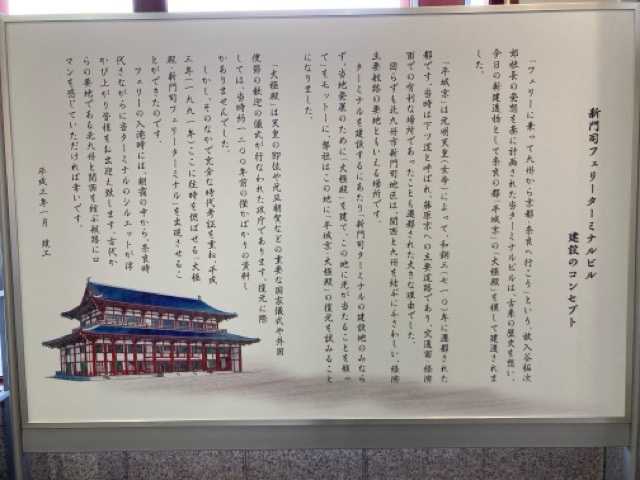 新門司フェリーターミナルビル
建設のコンセプト
「フェリーに乗って九州から京都・奈良へ行こう」という、故入谷拓次
郎社長の発想を基に計画された当ターミナルビルは、古来の歴史を想い、
今日の新建造物として奈良の都「平城京」の「大極殿」を模して建造されま
した。
「平城京」は元明天皇（女帝）によって、和銅三（七一〇）年に遷都された
都です。当時は下ツ道と呼ばれ、藤原京への主要道路であり、交通面・経済
面での有利な場所であったことも遷都された大きな理由でした。
図らずも北九州市新門司地区は、関西と九州を結ぶにふさわしい、経済
主要航路の要地ともいえる場所です。
ターミナルを建設するにあたり「新門司ターミナルの建設地のみなら
ず、当地発展のために「大極殿」を建て、この地に光が当たることを願っ
て」をモットーに、弊社はこの地に「平城京・大極殿」の復元を試みること
になりました。
「大極殿」は天皇の即位や元旦朝賀などの重要な国家儀式や外国
使節の歓迎の儀式が行なわれた政庁であります。復元に際
しては、当時約一二〇〇年前の僅かばかりの資料し
かありませんでした。
しかし、そのなかで完全な時代考証を重ね、平成
三年（一九九一年）ここに往時を偲ばせる、「大極
殿・新門司フェリーターミナル」を出現させるこ
とができたのです。
フェリーの入港時には、朝霧の中から、奈良時
代さながらに当ターミナルのシルエットが浮
かび上がり皆様をお出迎え致します。古代か
らの要地である北九州と関西を結ぶ航路にロ
マンを感じていただければ幸いです。
平成三年一月 竣工